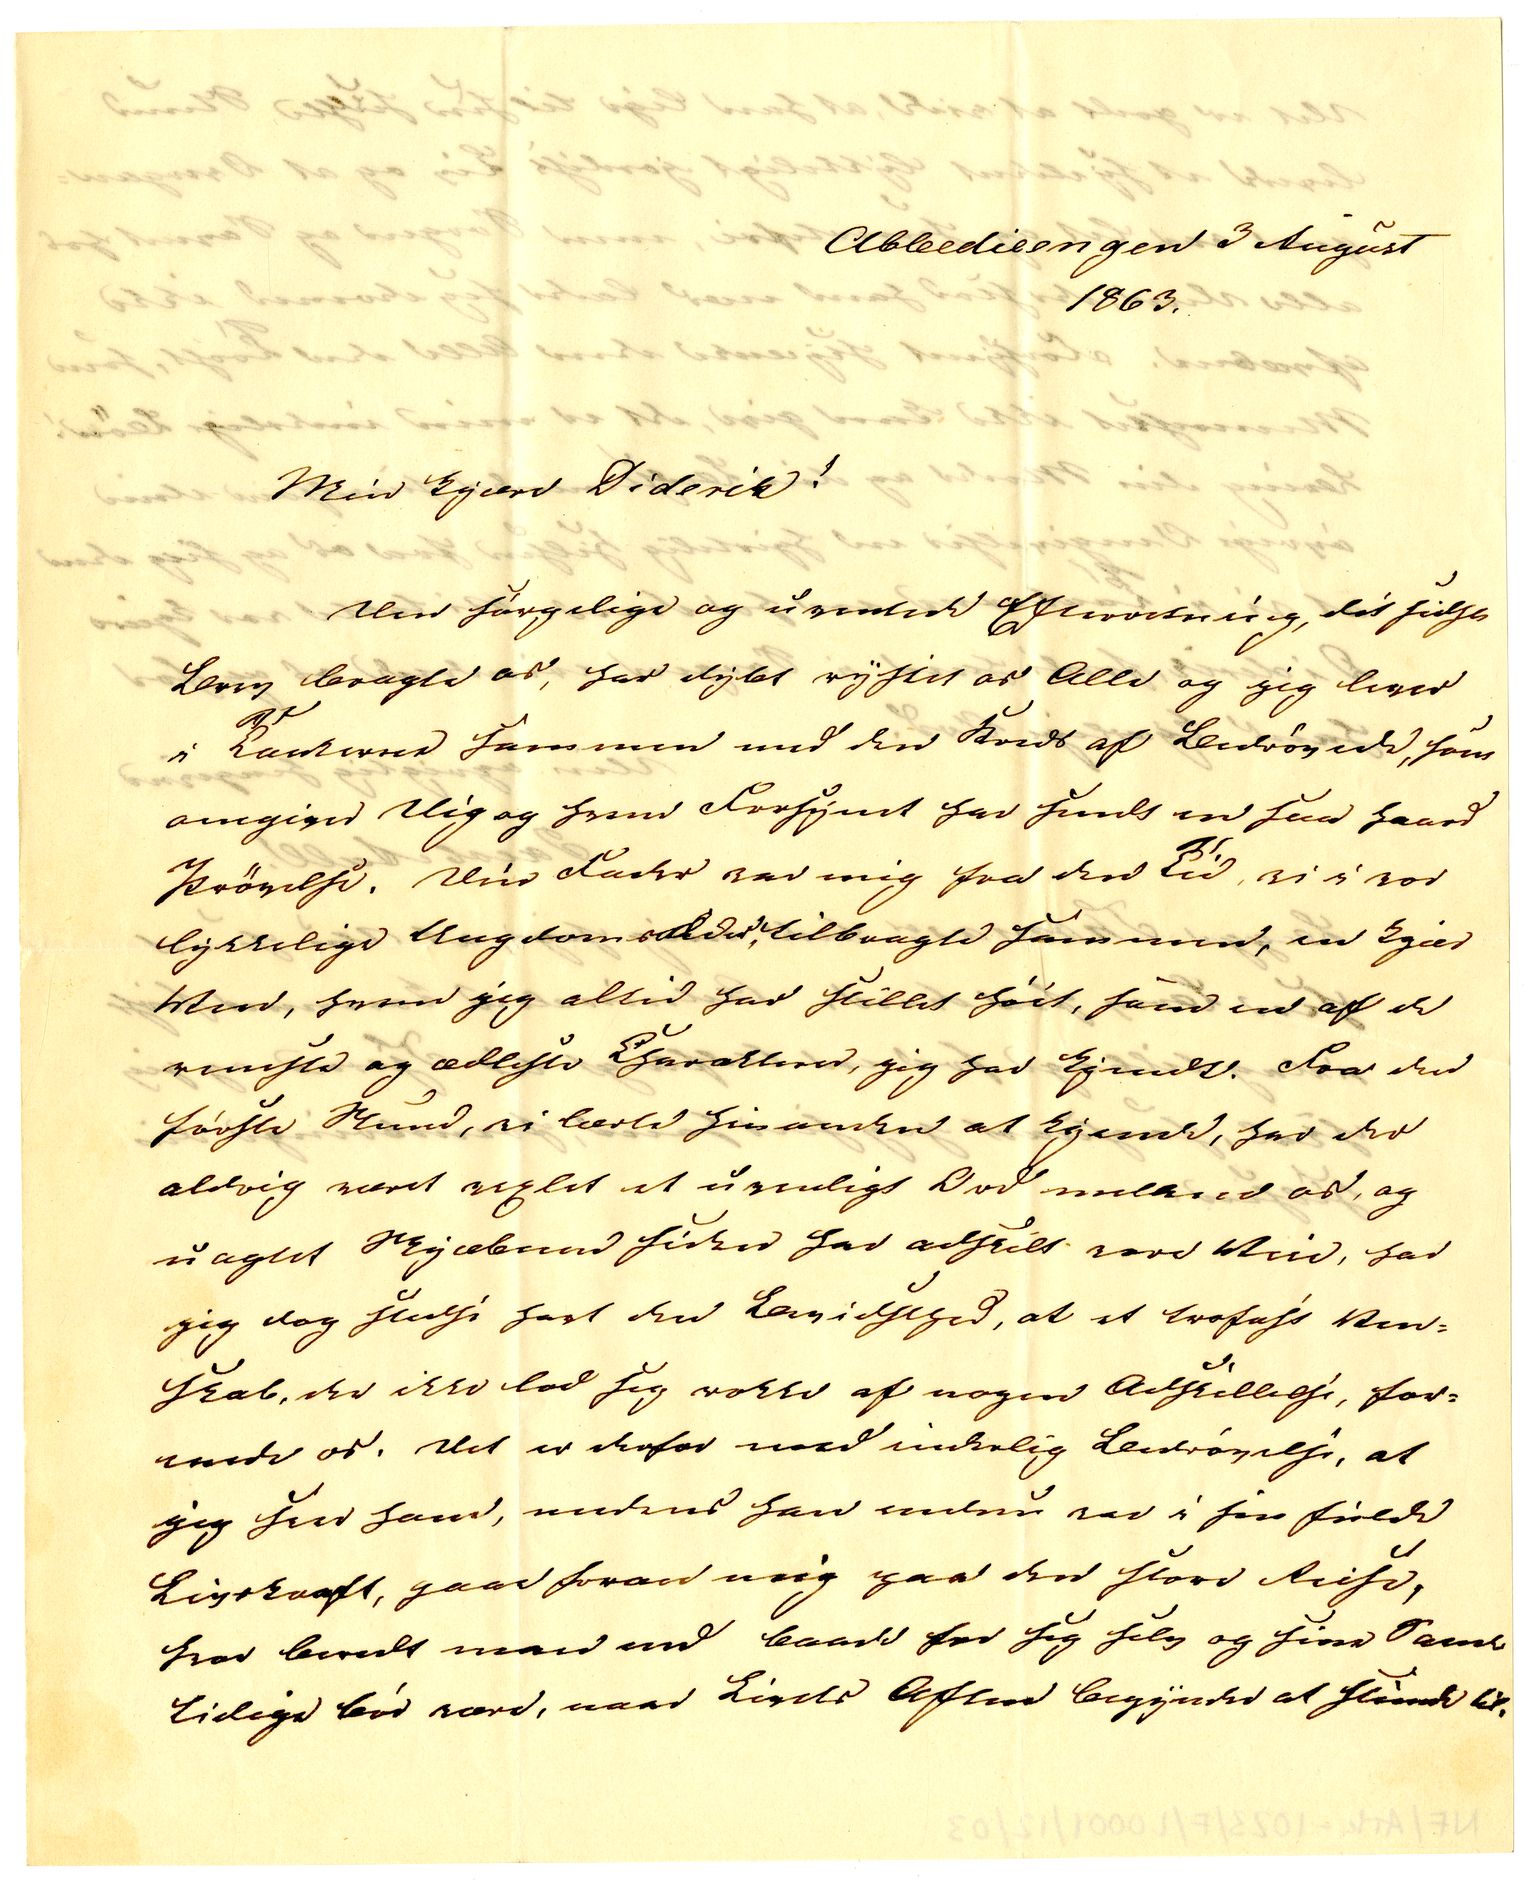 Abbediengen 3 August
1863.
Min kjære Diderik!
Den sørgelige og uventede Efterretning, dit sidste
Brev bragte os, har dybt rystet os Alle og jeg lever
i Tankerne sammen med den Kreds af Bedrøvede, som
omgiver Dig og hvem Forsynet har sendt en saa haard
Prøvelse. Din Fader var mig fra den Tid, vi i vor
lykkelige Ungdomsalder, tilbragte sammen, en kjær
Ven, hvem jeg altid har stillet høit, som en af de
reneste og ædleste Charakterer, jeg har kjendt. Fra den
første Stund, vi lærte hinanden at kjende, har der
aldrig været vexlet et uvenligt Ord mellem os, og
uagtet Skjæbnen siden har adskilt vore Veie, har
jeg dog stedse havt den Bevidsthed, at et trofast Ven=
skab, der ikke lod sig rokke af nogen Adskillelse, for=
enede os. Det er derfor med inderlig Bedrøvelse, at
jeg seer ham, medens han endnu var i sin fulde
Livskraft, gaae foran mig paa den store Reise,
hvor beredt man end baade for sig selv og sine Sam
tidige bør være, naar Livets Aften begynder at stunde til.
NF/Ark-1023/F/L0001/12/03